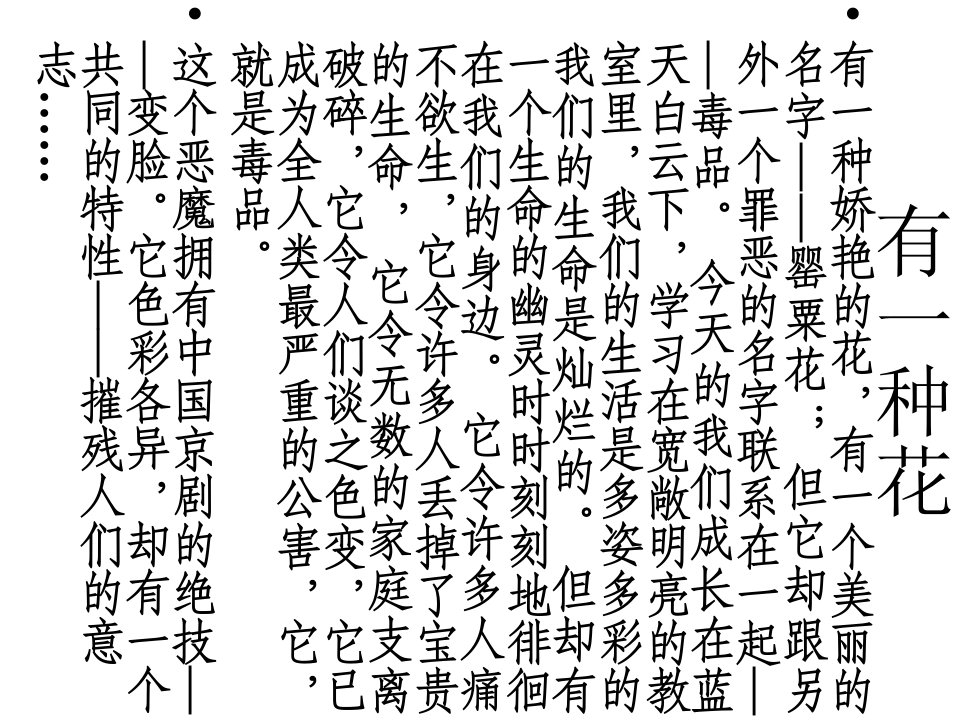 有一种花
有一种娇艳的花，有一个美丽的
名字——罂粟花； 但它却跟另
外一个罪恶的名字联系在一起—
—毒品。 今天的我们成长在蓝
天白云下，学习在宽敞明亮的教
室里， 我们的生活是多姿多彩的
我们的生命是灿烂的。 但却有
一个生命的幽灵时时刻刻地徘徊
在我们的身边。 它令许多人痛
不欲生，它令许多人丢掉了宝贵
的生命， 它令无数的家庭支离
破碎，它令人们谈之色变，它已
成为全人类最严重的公害，它，
就是毒品。
这个恶魔拥有中国京剧的绝技—
—变脸。它色彩各异，却有一个
共同的特性——摧残人们的意
志……